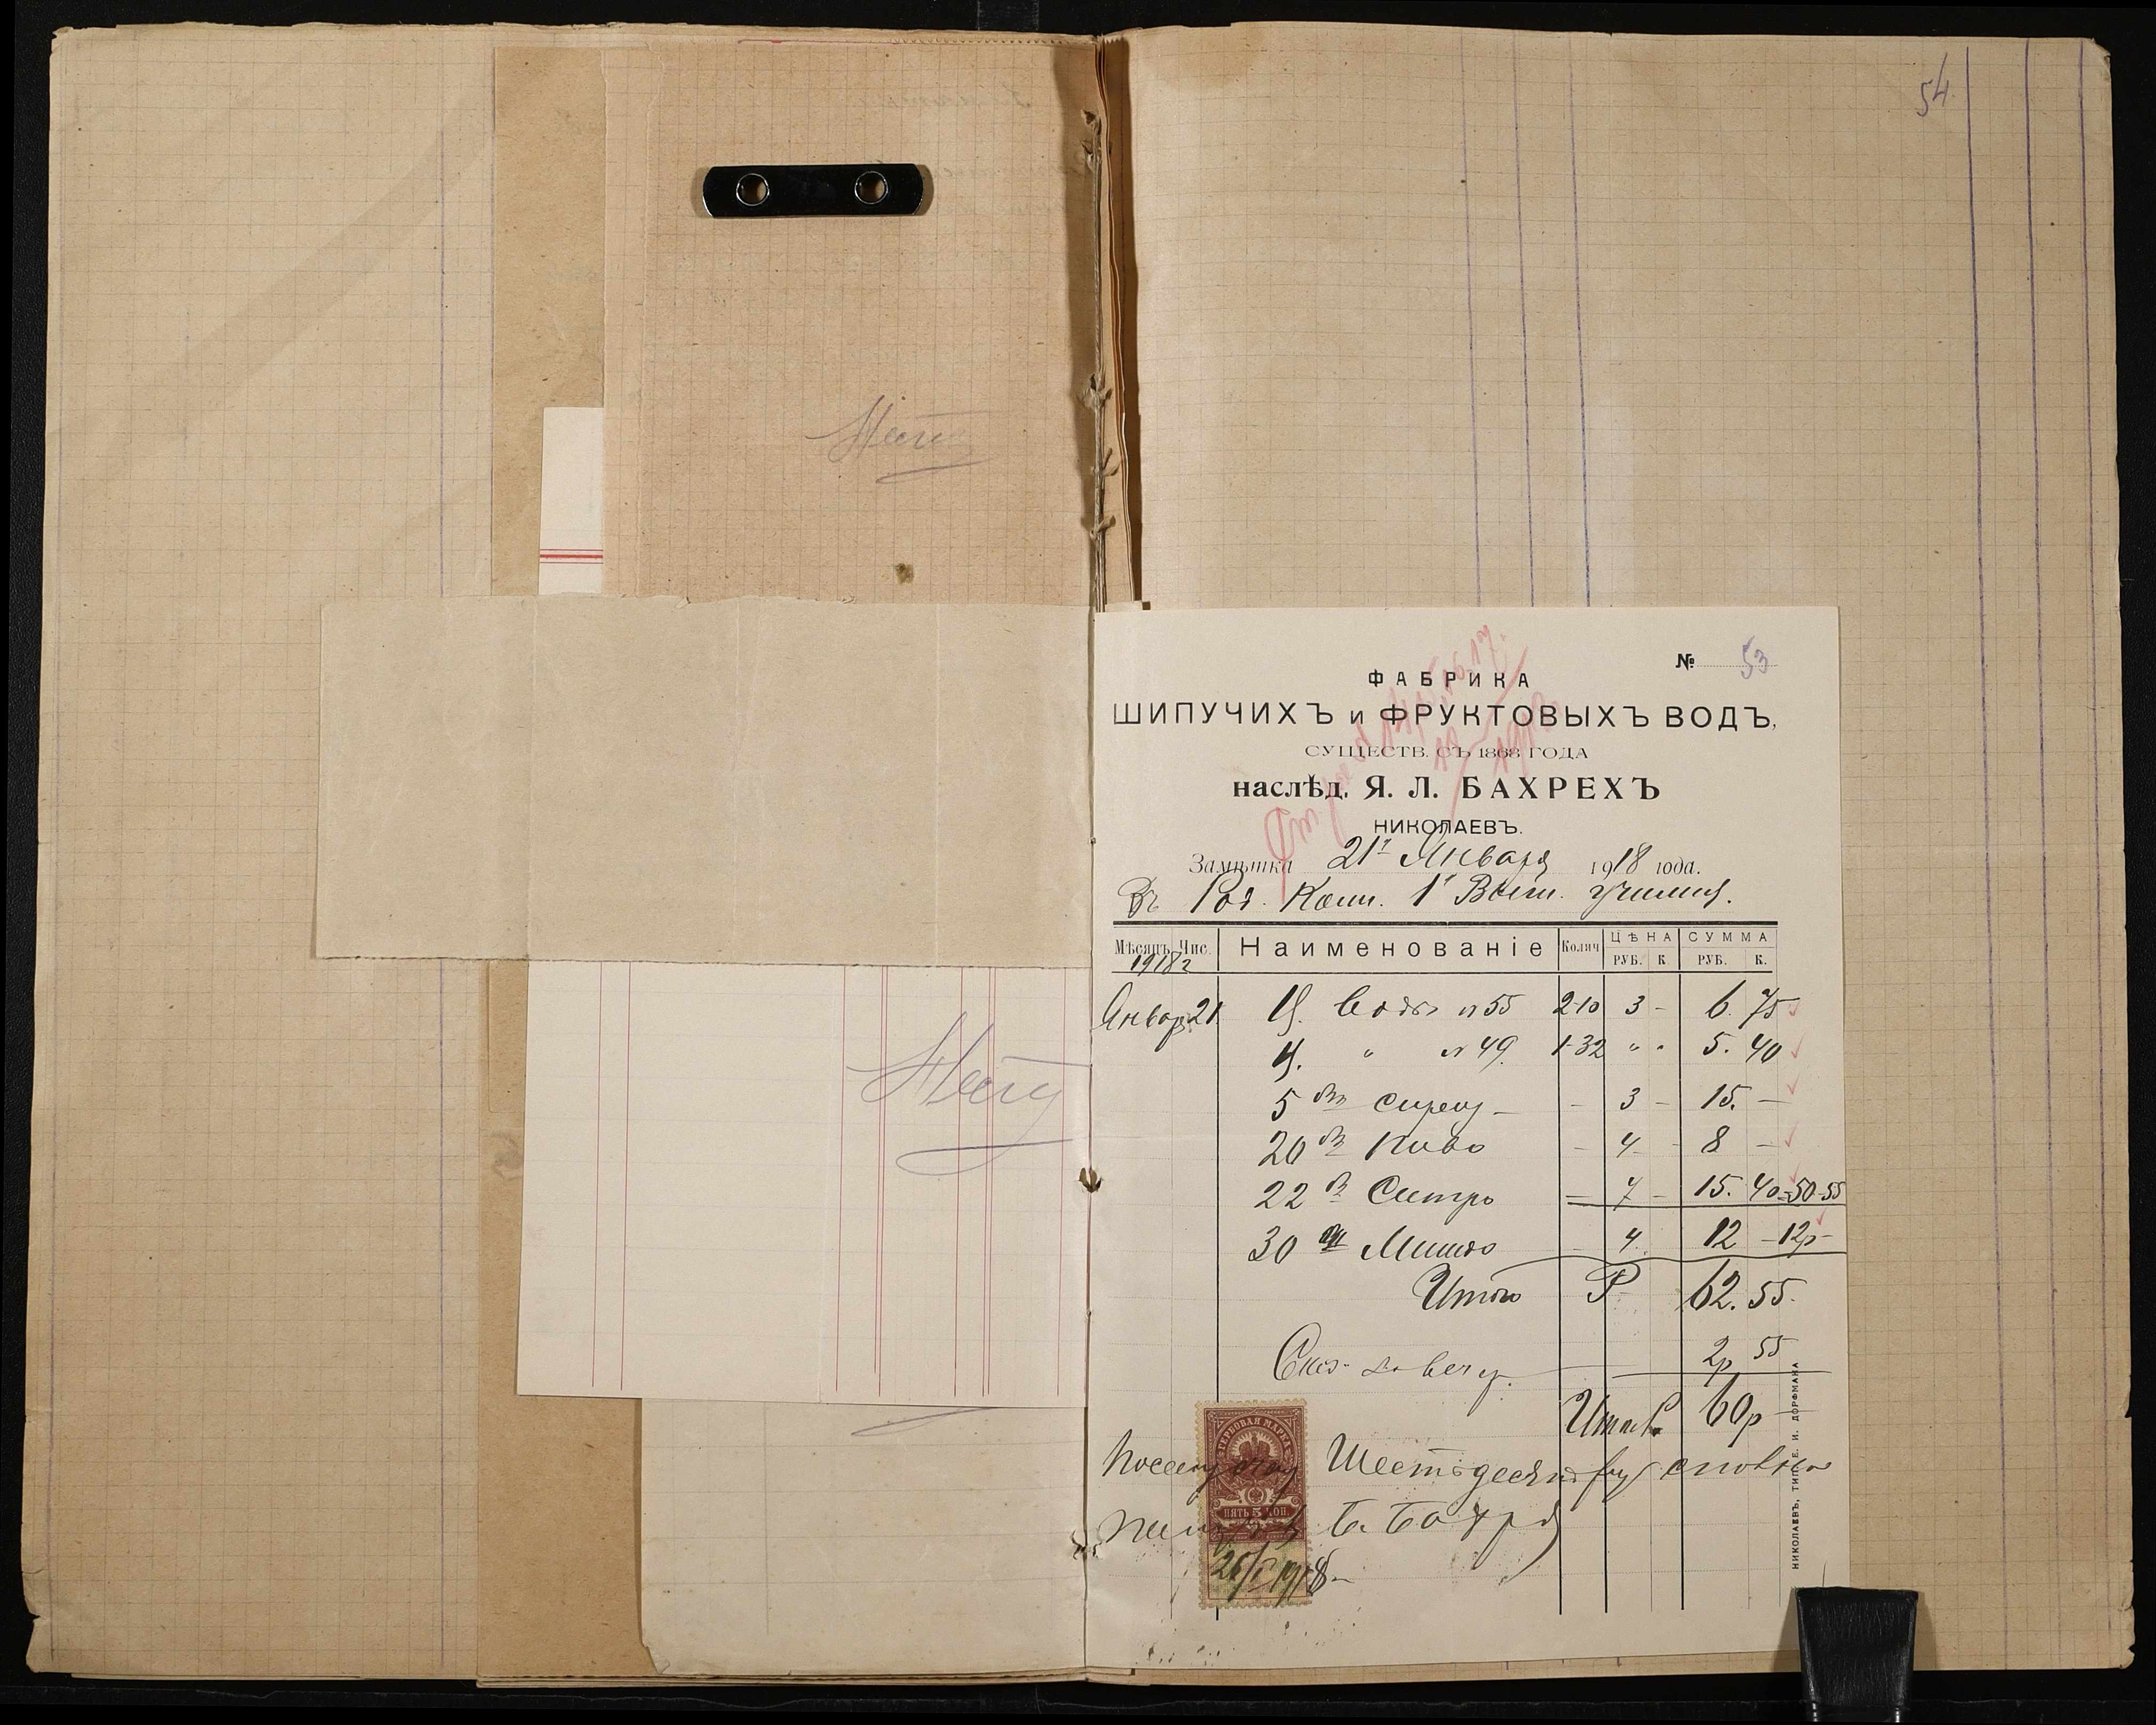 54
№ 53
ФАБРИКА
ШИПУЧИХЪ и ФРУКТОВЫХЪ ВОДЪ,
СУЩЕСТВ. СЪ 1868 ГОДА
наслѣд. Я. Л. БАХРЕХЪ
НИКОЛАЕВЪ.
Замѣтка 21го Января 1918 года.
Въ Род. Ком. 1 Высш. училищ.
Мѣсяцъ Чис. Наименованіе Колич ЦѢНА СУММА
1918 г РУБ. К РУБ. К.
Январ. 21 Воды 55 2-10 3 - 6. 75
" 49. 1-32 " " 5. 40
5 Сироп - - 3 - 15. -
20 Пиво - 4 - 8 -
22 Ситро = 7 - 15. 40 = 50-55
30 - 4. 12 - 12р -
Итого Р 62. 55.
2р 55
Итого 60р -
По сему счету Шестьдесят руб сполна
получ Б. Бахрех
26/I 1918
ГЕРБОВАЯ МАРКА
ПЯТЬ 5 КОП.
НИКОЛАЕВЪ, ТИП. Е. И. ДОРФМАНА